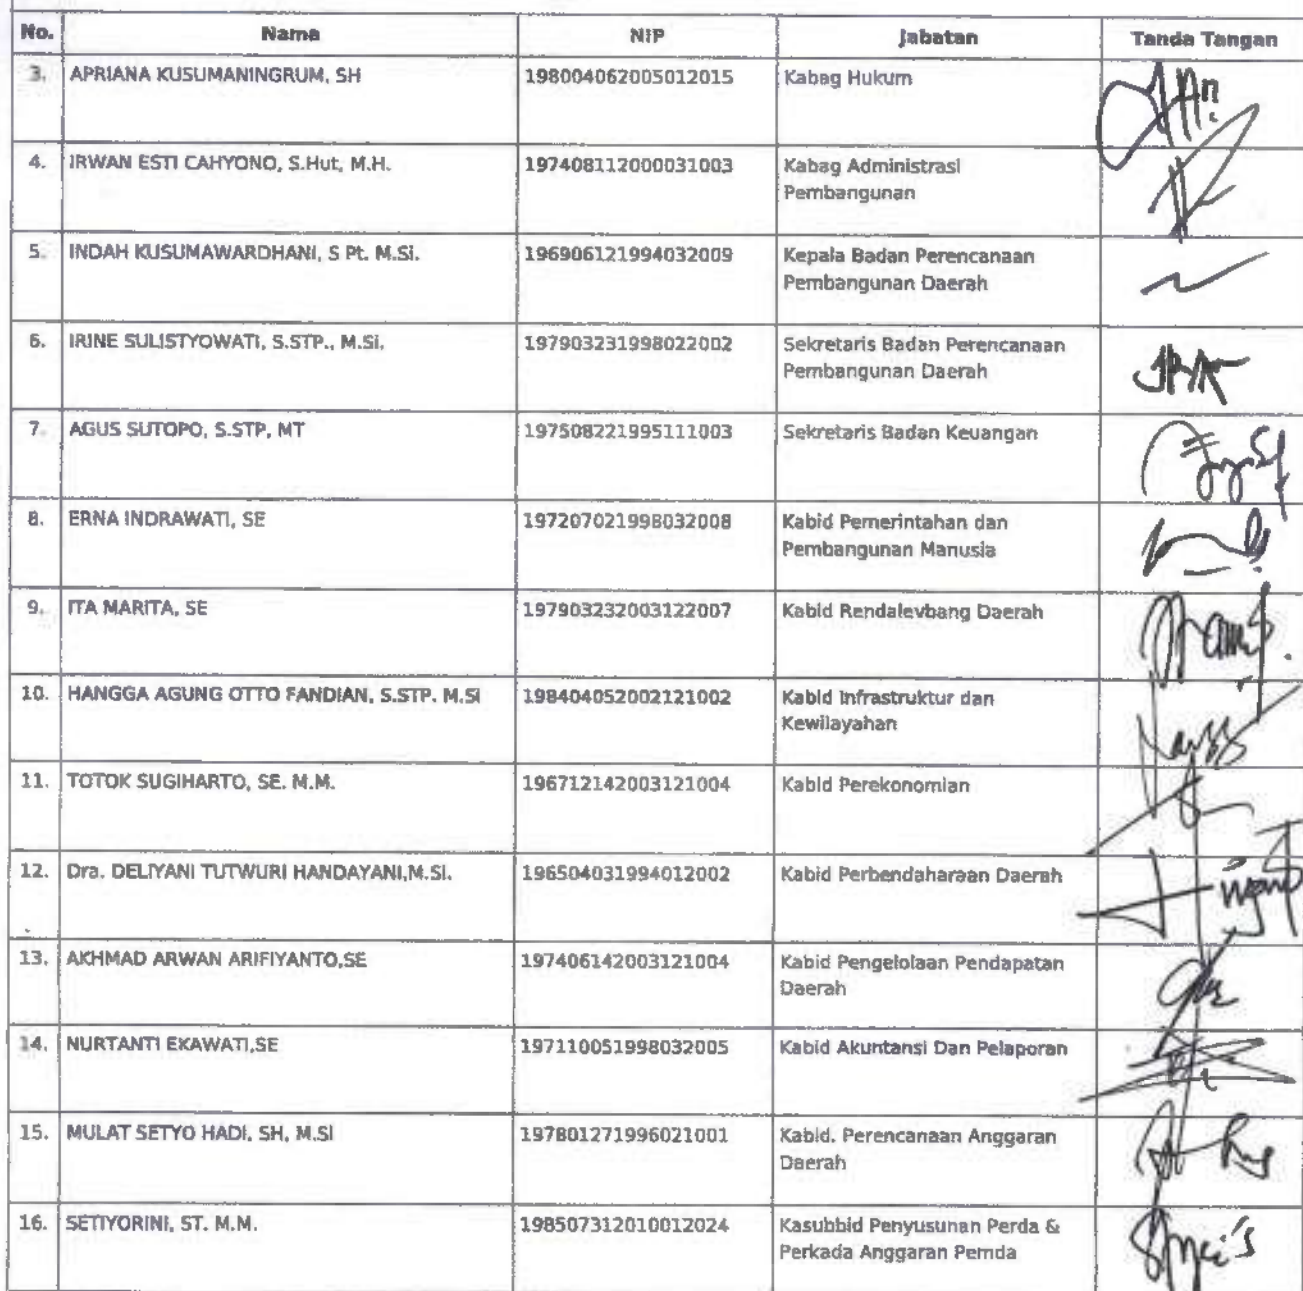 No. Nama NIP Jabatan Tanda Tangan
3. APRIANA KUSUMANINGRUM, SH 198004062005012015 Kabag Hukum
4. IRWAN ESTI CAHYONO, S.Hut, M.H. 197408112000031003 Kabag Administrasi
Pembangunan
5. INDAH KUSUMAWARDHANI, S Pt. M.Si. 196906121994032009 Kepala Badan Perencanaan
Pembangunan Daerah
6. IRINE SULISTYOWATI, S.STP., M.Si. 197903231998022002 Sekretaris Badan Perencanaan
Pembangunan Daerah
7. AGUS SUTOPO, S.STP, MT 197508221995111003 Sekretaris Badan Keuangan
8. ERNA INDRAWATI, SE 197207021998032008 Kabid Pemerintahan dan
Pembangunan Manusia
9. ITA MARITA, SE 197903232003122007 Kabid Rendalevbang Daerah
10. HANGGA AGUNG OTTO FANDIAN, S.STP. M.Si 198404052002121002 Kabid Infrastruktur dan
Kewilayahan
11. TOTOK SUGIHARTO, SE. M.M. 196712142003121004 Kabid Perekonomian
12. Dra. DELIYANI TUTWURI HANDAYANI,M.Si. 196504031994012002 Kabid Perbendaharaan Daerah
13. AKHMAD ARWAN ARIFIYANTO,SE 197406142003121004 Kabid Pengelolaan Pendapatan
Daerah
14. NURTANTI EKAWATI,SE 197110051998032005 Kabid Akuntansi Dan Pelaporan
15. MULAT SETYO HADI, SH, M.Si 197801271996021001 Kabid. Perencanaan Anggaran
Daerah
16. SETIYORINI, ST. M.M. 198507312010012024 Kasubbid Penyusunan Perda &
Perkada Anggaran Pemda